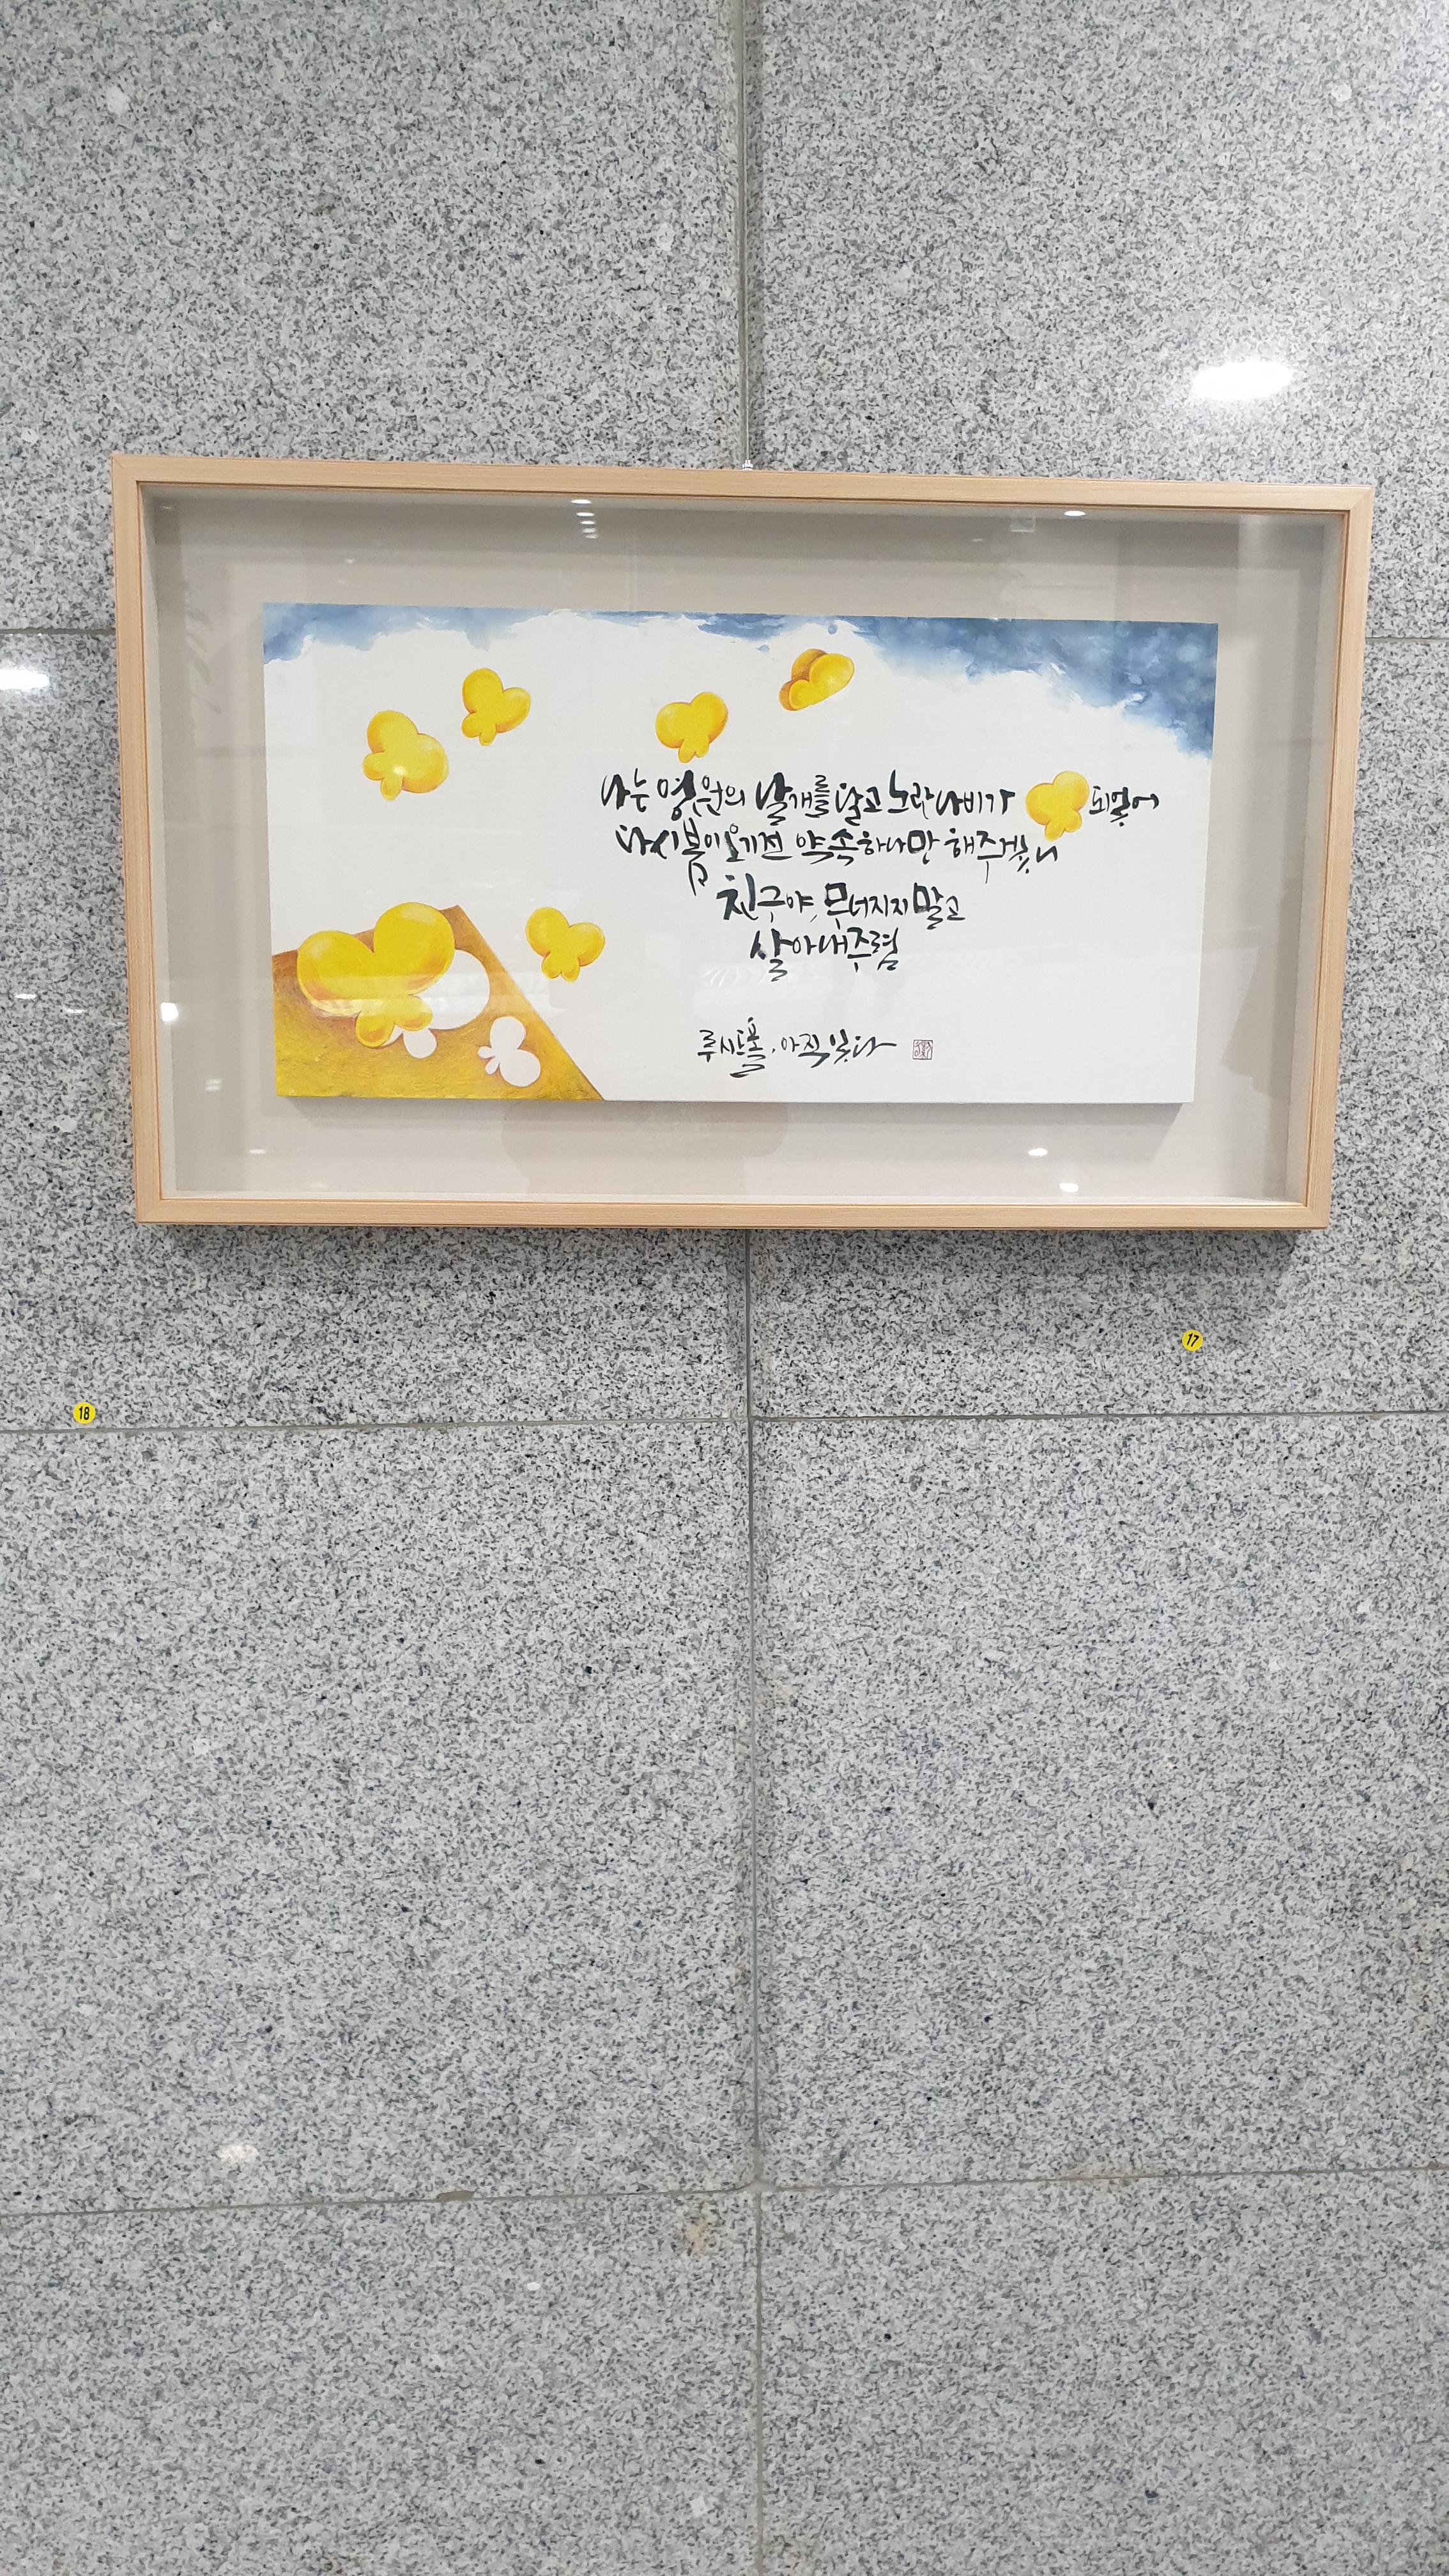 나는 영원의 날개를 달고 노란 나비가 되었어
다시 봄이 오기 전 약속 하나만 해주겠니
친구야, 무너지지 말고
살아내 주렴
루시드폴, 아직 있다
17
18